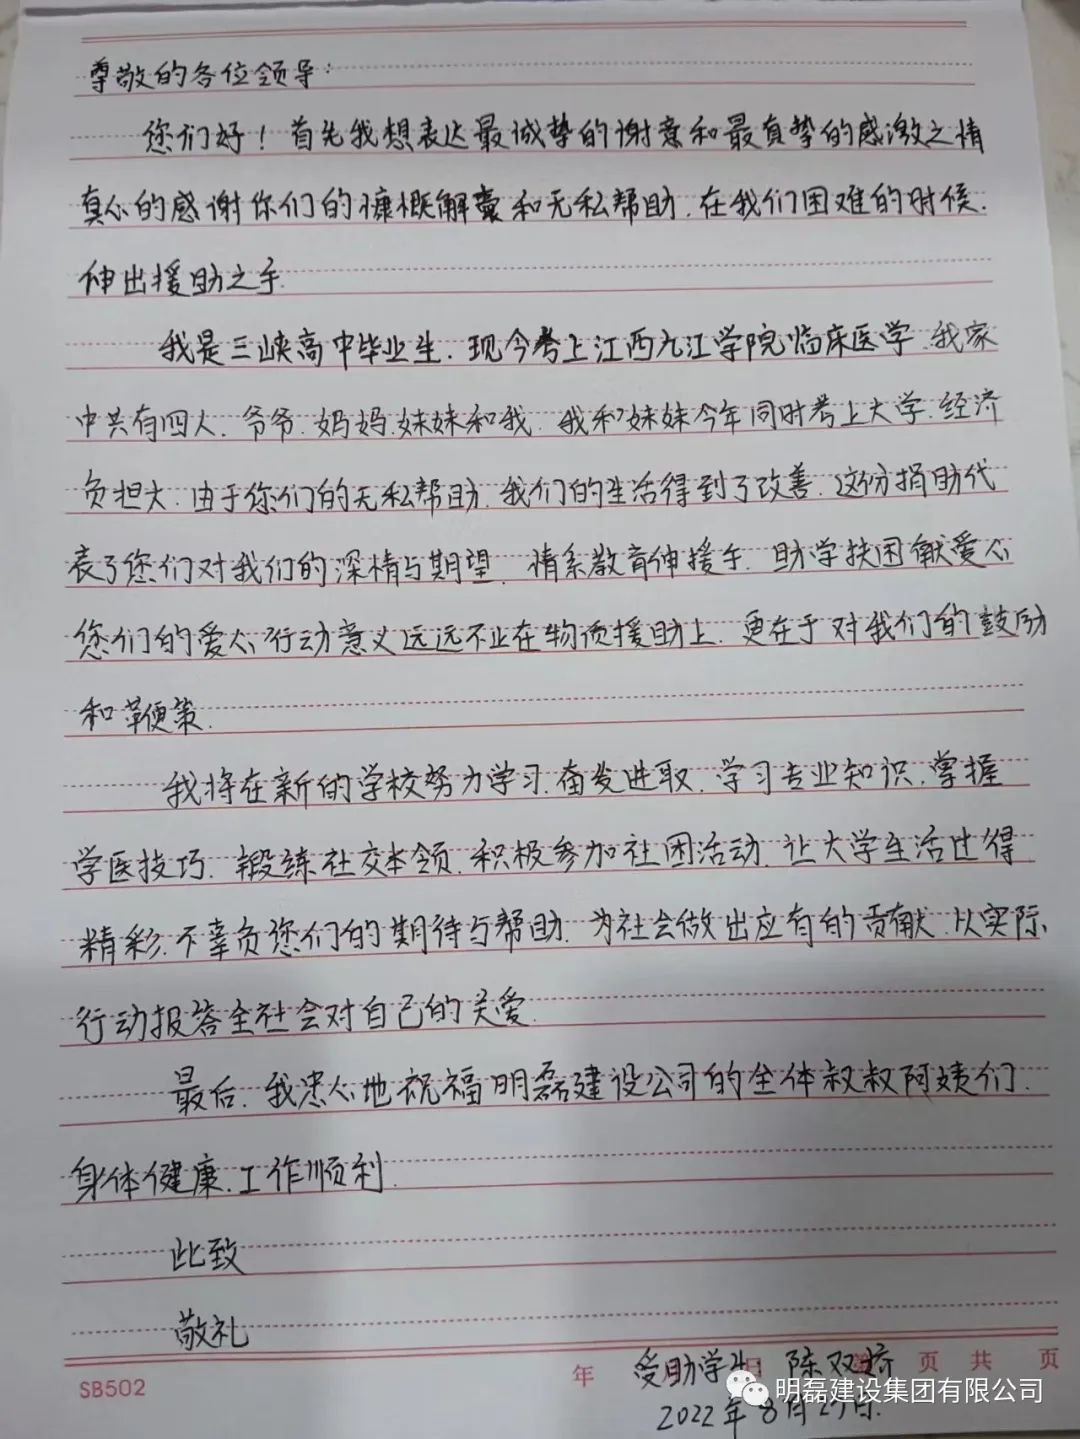 尊敬的各位领导:
您们好！首先我想表达最诚挚的谢意和最真挚的感激之情
真心的感谢你们的慷慨解囊和无私帮助.在我们困难的时候.
伸出援助之手.
我是三峡高中毕业生.现今考上江西九江学院临床医学.我家
中共有四人.爷爷.妈妈.妹妹和我.我和妹妹今年同时考上大学.经济
负担大.由于您们的无私帮助.我们的生活得到了改善.这份捐助代
表了您们对我们的深情与期望.情系教育伸援手.助学扶困献爱心
您们的爱心行动意义远远不止在物质援助上.更在于对我们的鼓励
和鞭策.
我将在新的学校努力学习.奋发进取.学习专业知识.掌握
学医技巧.锻练社交本领.积极参加社团活动.让大学生活过得
精彩.不辜负您们的期待与帮助.为社会做出应有的贡献.以实际
行动报答全社会对自己的关爱.
最后.我忠心地祝福明磊建设公司的全体叔叔阿姨们.
身体健康.工作顺利.
此致
敬礼
受助学生:陈双
2022年8月27日.
SB502 年 日 第 页 共 页
明磊建设集团有限公司